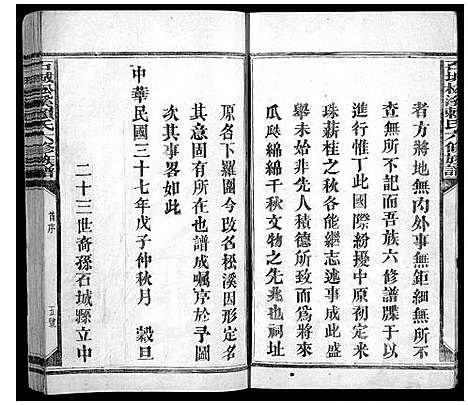 石城松溪賴氏六修族譜
者方將地無內外事無鉅細無所不
查無所不記而吾族六修譜牒乃
進行惟丁此國際紛擾中原初定米
珠薪桂之秋各能繼志述事成此盛
舉未始非先人積德所致而爲將來
瓜瓞綿綿千秋文物之先兆也祠址
原名下羅圍今改名松溪因形定名
其沿固有所在也譜成囑序於予圖
次其事畧如此
中華民國三十七年戊子仲秋月 穀旦
二十三世裔孫石城縣立中
石城松溪賴氏六修族譜
首序
五號